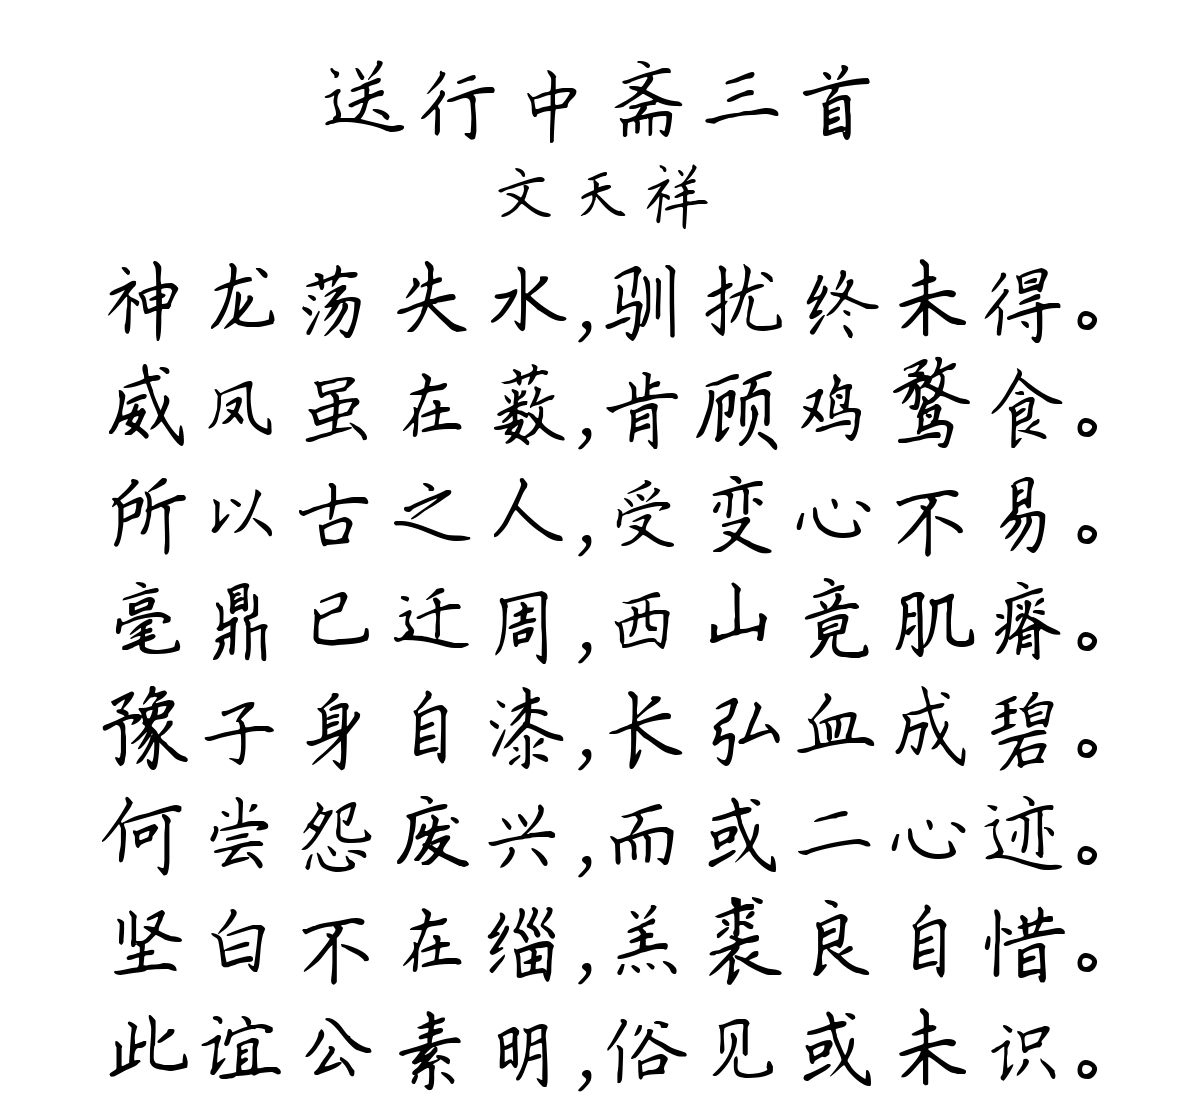 送行中斋三首
文天祥
神龙荡失水,驯扰终未得。
威凤虽在薮,肯顾鸡鹜食。
所以古之人,受变心不易。
毫鼎已迁周,西山竟肌瘠。
豫子身自漆,长弘血成碧。
何尝怨废兴,而或二心迹。
坚白不在缁,羔裘良自惜。
此谊公素明,俗见或未识。